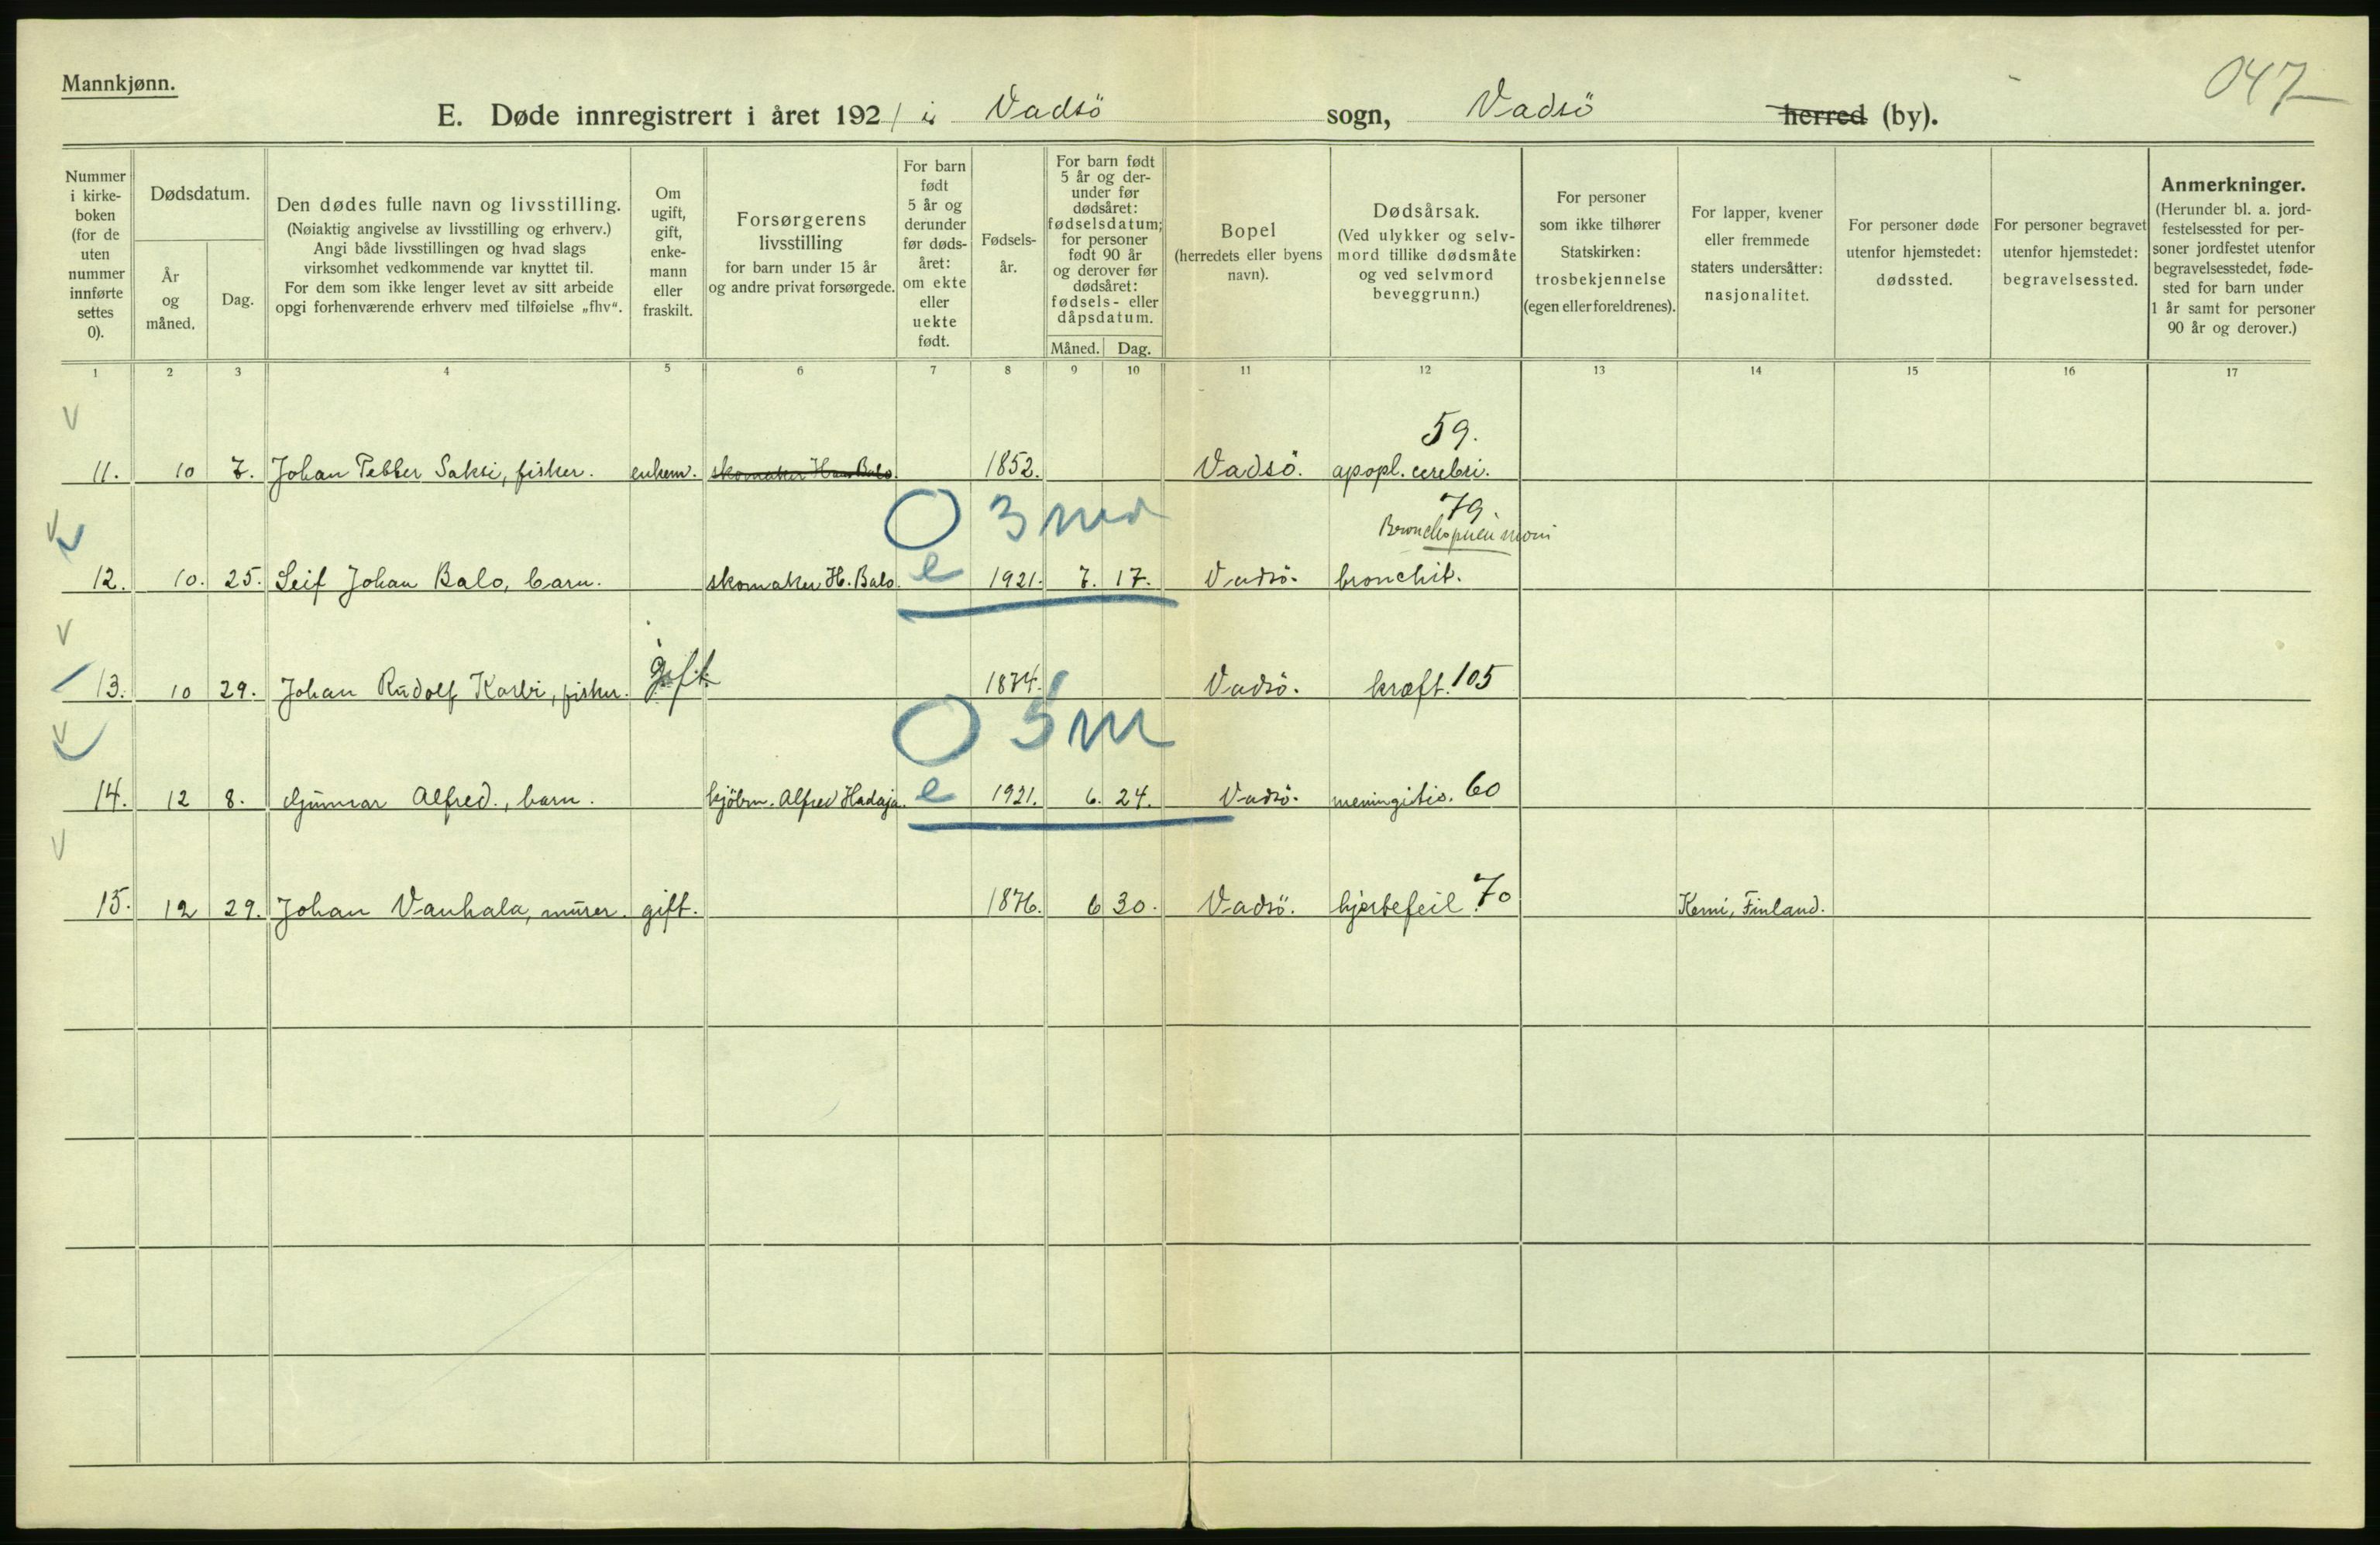 Mannkjønn.
047
E. Døde innregistrert i året 1921 i Vadsö sogn, Vadsö herred (by).
Nummer i kirke-boken (for de uten nummer innførte settes 0).
Dødsdatum.
År og måned.
Dag.
Den dødes fulle navn og livsstilling.
(Nøiaktig angivelse av livsstilling og erhverv.)
Angi både livsstillingen og hvad slags
virksomhet vedkommende var knyttet til.
For dem som ikke lenger levet av sitt arbeide
opgi forhenværende erhverv med tilføielse „fhv“.
Om ugift, gift, enke-mann eller fraskilt.
Forsørgerens livsstilling
for barn under 15 år
og andre privat forsørgede.
For barn født 5 år og derunder før døds-året: om ekte eller uekte født.
Fødsels-år.
For barn født 5 år og der-under før dødsåret: fødselsdatum; for personer født 90 år og derover før dødsåret: fødsels- eller dåpsdatum.
Måned. Dag.
Bopel
(herredets eller byens navn).
Dødsårsak.
(Ved ulykker og selv-mord tillike dødsmåte og ved selvmord beveggrunn.)
For personer som ikke tilhører Statskirken: trosbekjennelse (egen eller foreldrenes).
For lapper, kvener eller fremmede staters undersåtter: nasjonalitet.
For personer døde utenfor hjemstedet: dødssted.
For personer begravet utenfor hjemstedet: begravelsessted.
Anmerkninger.
(Herunder bl. a. jord-festelsessted for per-soner jordfestet utenfor begravelsesstedet, føde-sted for barn under 1 år samt for personer 90 år og derover.)
1 2 3 4 5 6 7 8 9 10 11 12 13 14 15 16 17
59.
11. 10 7. Johan Petter Saksi, fisker. enkem. skomaker Hans Balo. 1852. Vadsö. apopl. cerebri.
0 3 md 79.
Bronchopneumoni
12. 10. 25. Leif Johan Balo, barn. skomaker H. Balo. e 1921. 7. 17. Vadsö. bronchit.
13. 10 29. Johan Rudolf Karbi, fisker. gift. 1874. Vadsö. kræft. 105
0 5 m
14. 12 8. Gunnar Alfred., barn. kjöbm. Alfred Hadaja. e 1921. 6. 24. Vadsö. meningitis. 60
15. 12 29. Johan Vanhala, murer. gift. 1876. 6 30. Vadsö. hjertefeil. 70 Kemi, Finland.